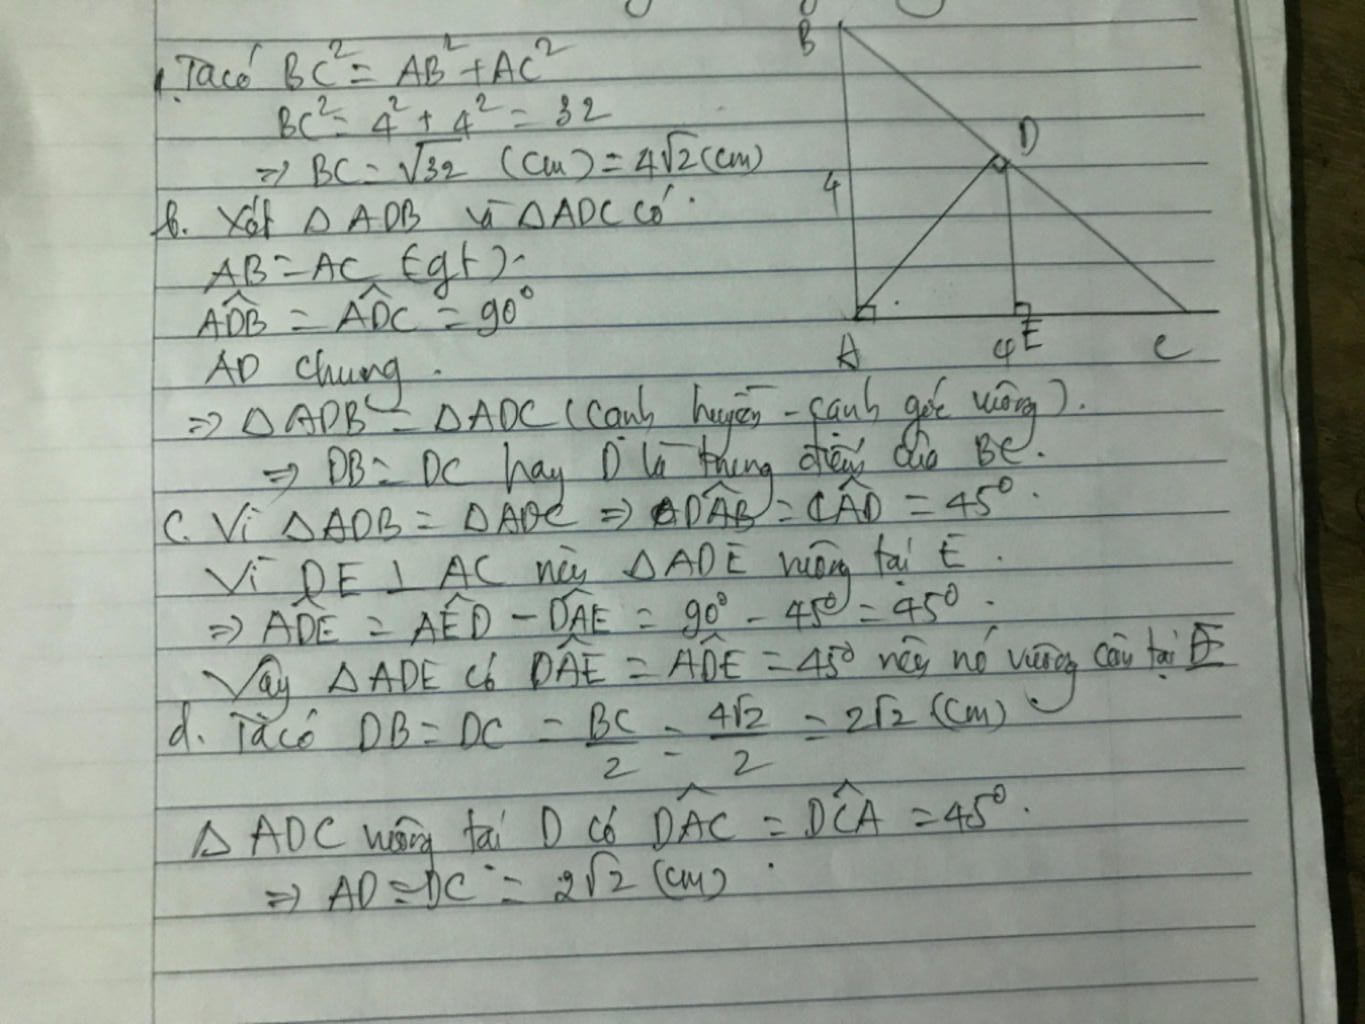 Ta có BC² = AB² + AC²
BC² = 4² + 4² = 32
=> BC = √32 (cm) = 4√2 (cm)
b. Xét △ADB và △ADC có
AB = AC (gt)
ADB̂ = ADĈ = 90°
AD chung.
=> △ADB = △ADC (cạnh huyền - cạnh góc vuông).
=> DB = DC hay D là trung điểm của BC.
c. Vì △ADB = △ADC => DÂB = CÂD = 45°.
Vì DE ⊥ AC nên △ADE vuông tại E.
=> AD̂E = AÊD - DÂE = 90° - 45° = 45°.
Vậy △ADE có DÂE = AD̂E = 45° nên nó vuông cân tại E
d. Ta có DB = DC = BC/2 = 4√2/2 = 2√2 (cm)
△ADC vuông tại D có DÂC = DĈA = 45°.
=> AD = DC = 2√2 (cm)
B
D
4
A
4
E
C